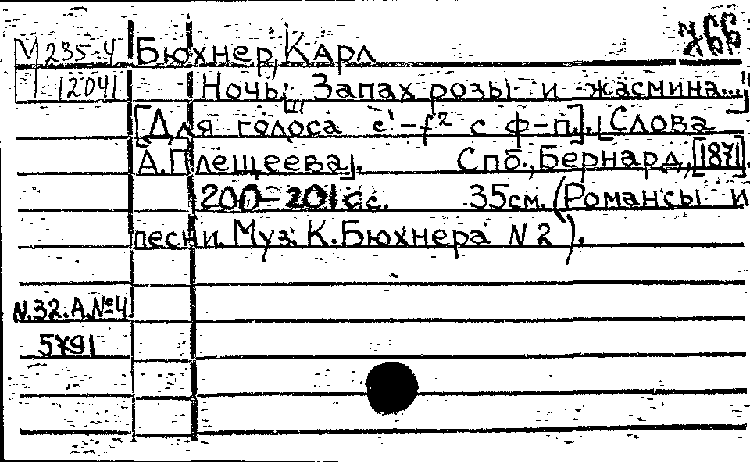 766
М 235-4 Бюхнер, Карл
12041 Ночь; "Запах розы и жасмина..."
[Для голоса e¹-f² с ф-п.]. [Слова
А. Плещеева]. Спб., Бернард, [1871].
200-201 с. 35см. (Романсы и
песни. Муз. К. Бюхнера N 2).
N.32.А.№4
5791